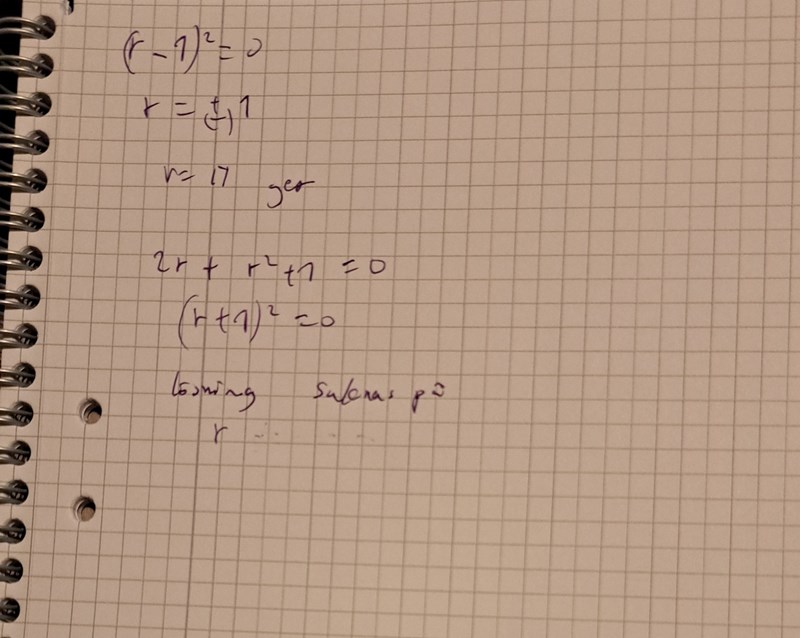 (r - 1)² = 0
r = ± 1
r = 17 ger
2r + r² + 1 = 0
(r + 1)² = 0
lösning saknas på
r